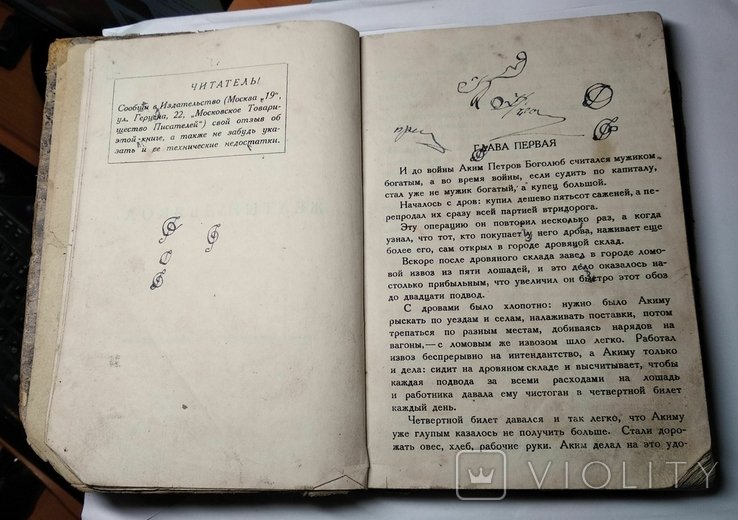 ЧИТАТЕЛЬ!
Сообщи в Издательство (Москва „19",
ул. Герцена, 22, „Московское Товари-
щество Писателей") свой отзыв об
этой книге, а также не забудь ука-
зать и ее технические недостатки.
ГЛАВА ПЕРВАЯ
И до войны Аким Петров Боголюб считался мужиком
богатым, а во время войны, если судить по капиталу,
стал уже не мужик богатый, а купец большой.
Началось с дров: купил дешево пятьсот саженей, а пе-
репродал их сразу всей партией втридорога.
Эту операцию он повторил несколько раз, а когда
узнал, что тот, кто покупает у него дрова, наживает еще
более его, сам открыл в городе дровяной склад.
Вскоре после дровяного склада завел в городе ломо-
вой извоз из пяти лошадей, и это дело оказалось на-
столько прибыльным, что увеличил он быстро этот обоз
до двадцати подвод.
С дровами было хлопотно: нужно было Акиму
рыскать по уездам и селам, налаживать поставки, потом
трепаться по разным местам, добиваясь нарядов на
вагоны,— с ломовым же извозом шло легко. Работал
извоз беспрерывно на интендантство, а Акиму только
и дела: сидит на дровяном складе и высчитывает, чтобы
каждая подвода за всеми расходами на лошадь
и работника давала ему чистоган в четвертной билет
каждый день.
Четвертной билет давался и так легко, что Акиму
уже глупым казалось не получить больше. Стали доро-
жать овес, хлеб, рабочие руки. Аким делал на это удо-
VIOLITY